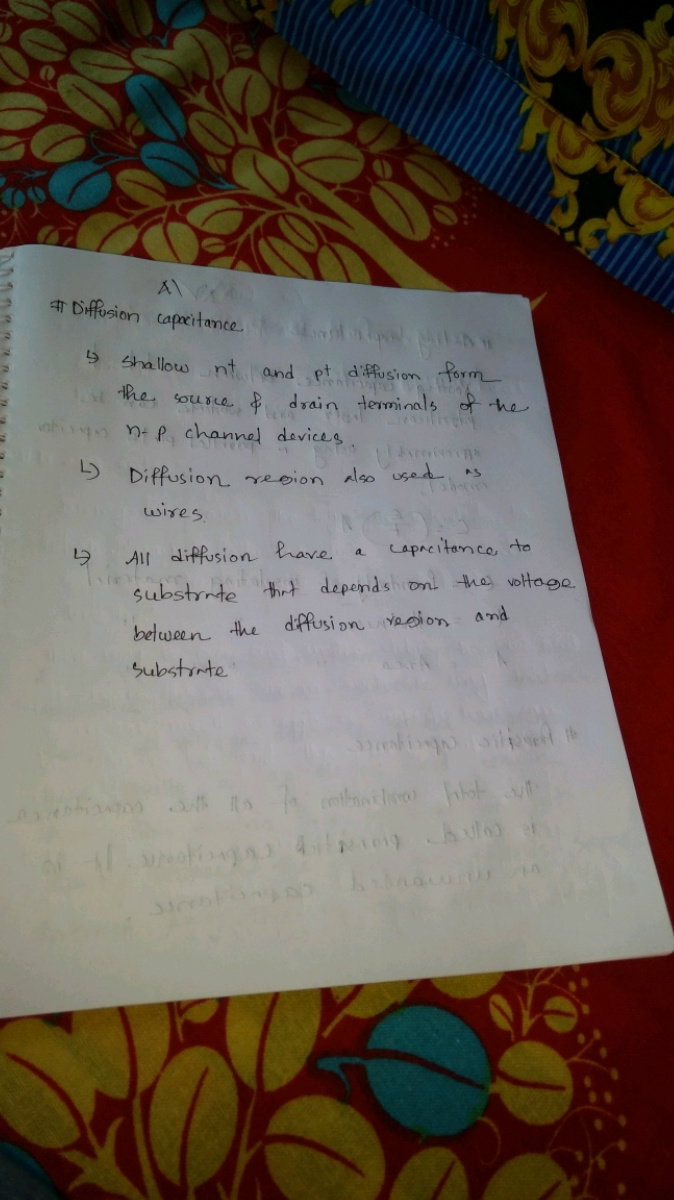 # Diffusion capacitance
↳ shallow n+ and p+ diffusion form
the source & drain terminals of the
n- p channel devices.
↳ Diffusion region also used as
wires.
↳ All diffusion have a capacitance to
substrate that depends on the voltage
between the diffusion region and
substrate